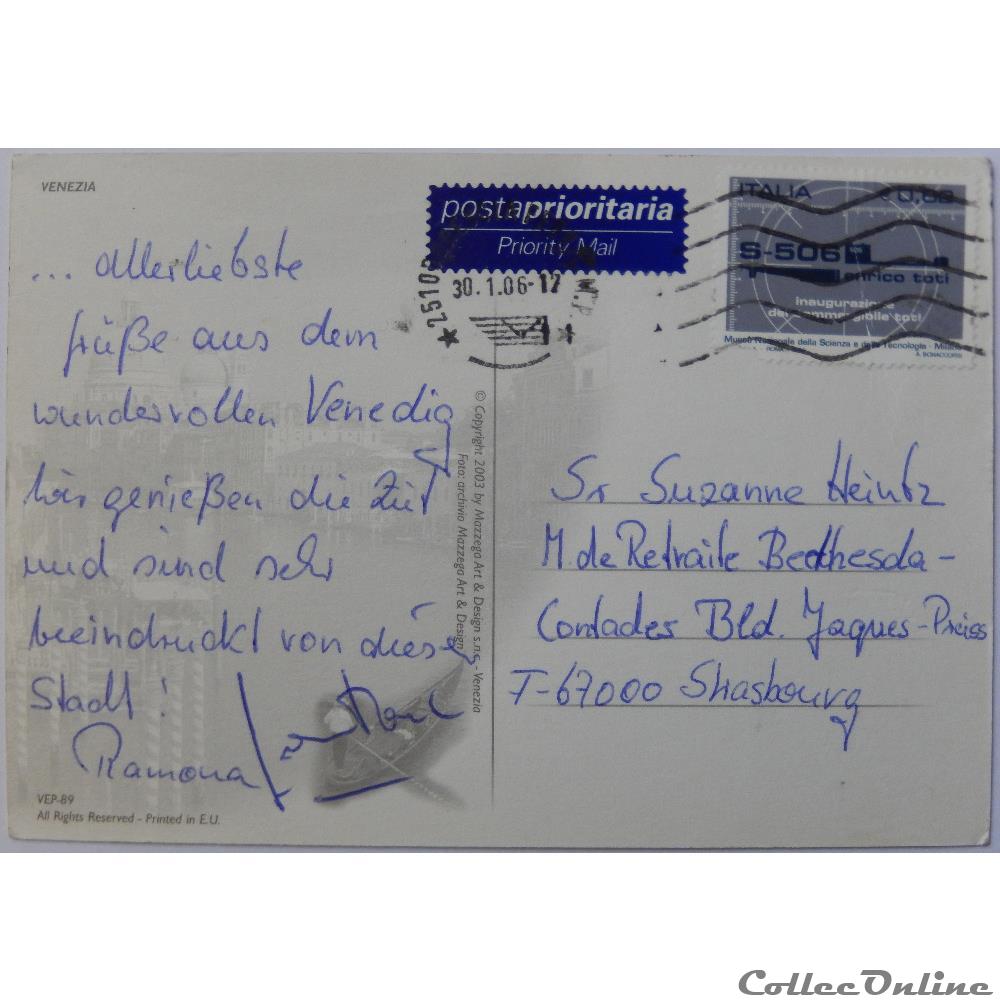 VENEZIA
... allerliebste
Grüße aus dem
wundervollen Venedig
Wir genießen die Zeit
und sind sehr
beeindruckt von dieser
Stadt!
Ramona
VEP-89
All Rights Reserved - Printed in E.U.
© Copyright 2003 by Mazzega Art & Design s.n.c. - Venezia
Foto: archivio Mazzega Art & Design
postaprioritaria
Priority Mail
30.1.06-17
ITALIA
S-506
enrico toti
inaugurazione
del sommergibile toti
Museo Nazionale della Scienza e della Tecnologia - Milano
ROMA
A. BONACCORSI
Sr Suzanne Heintz
M. de Retraite Bethesda-
Contades Bld. Jaques-Preiss
F-67000 Strasbourg
CollecOnline